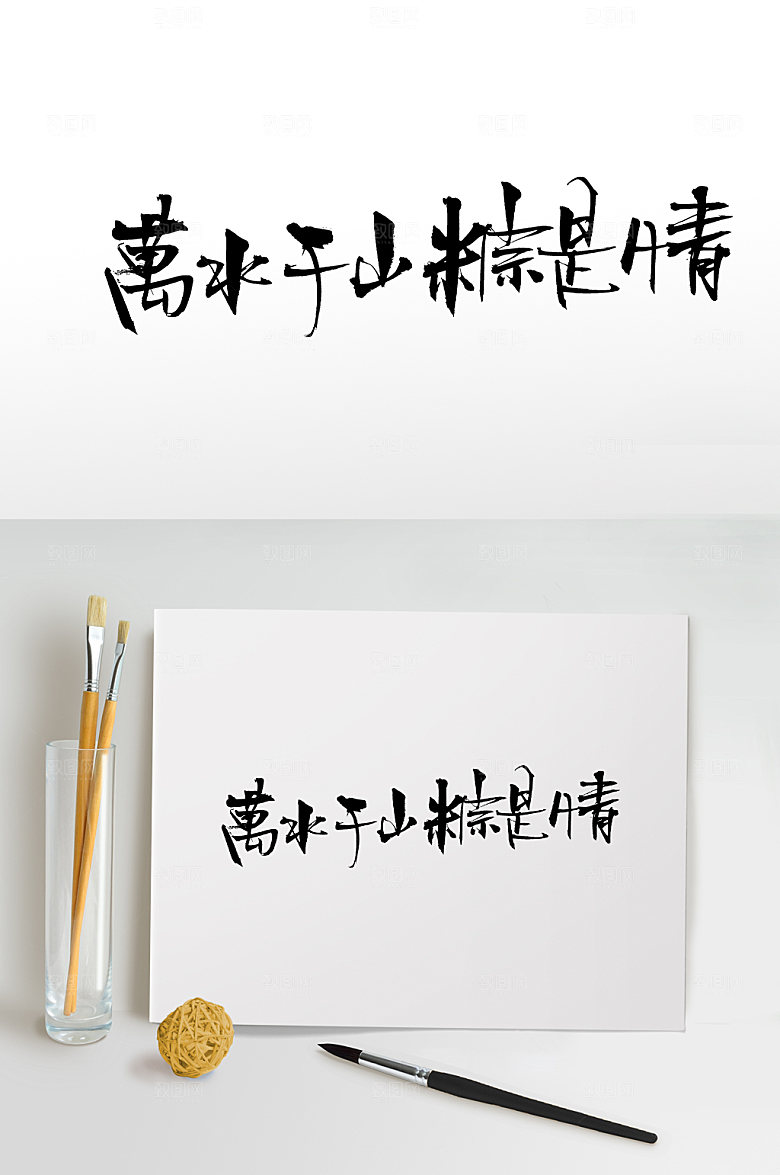 萬水千山粽是情
萬水千山粽是情